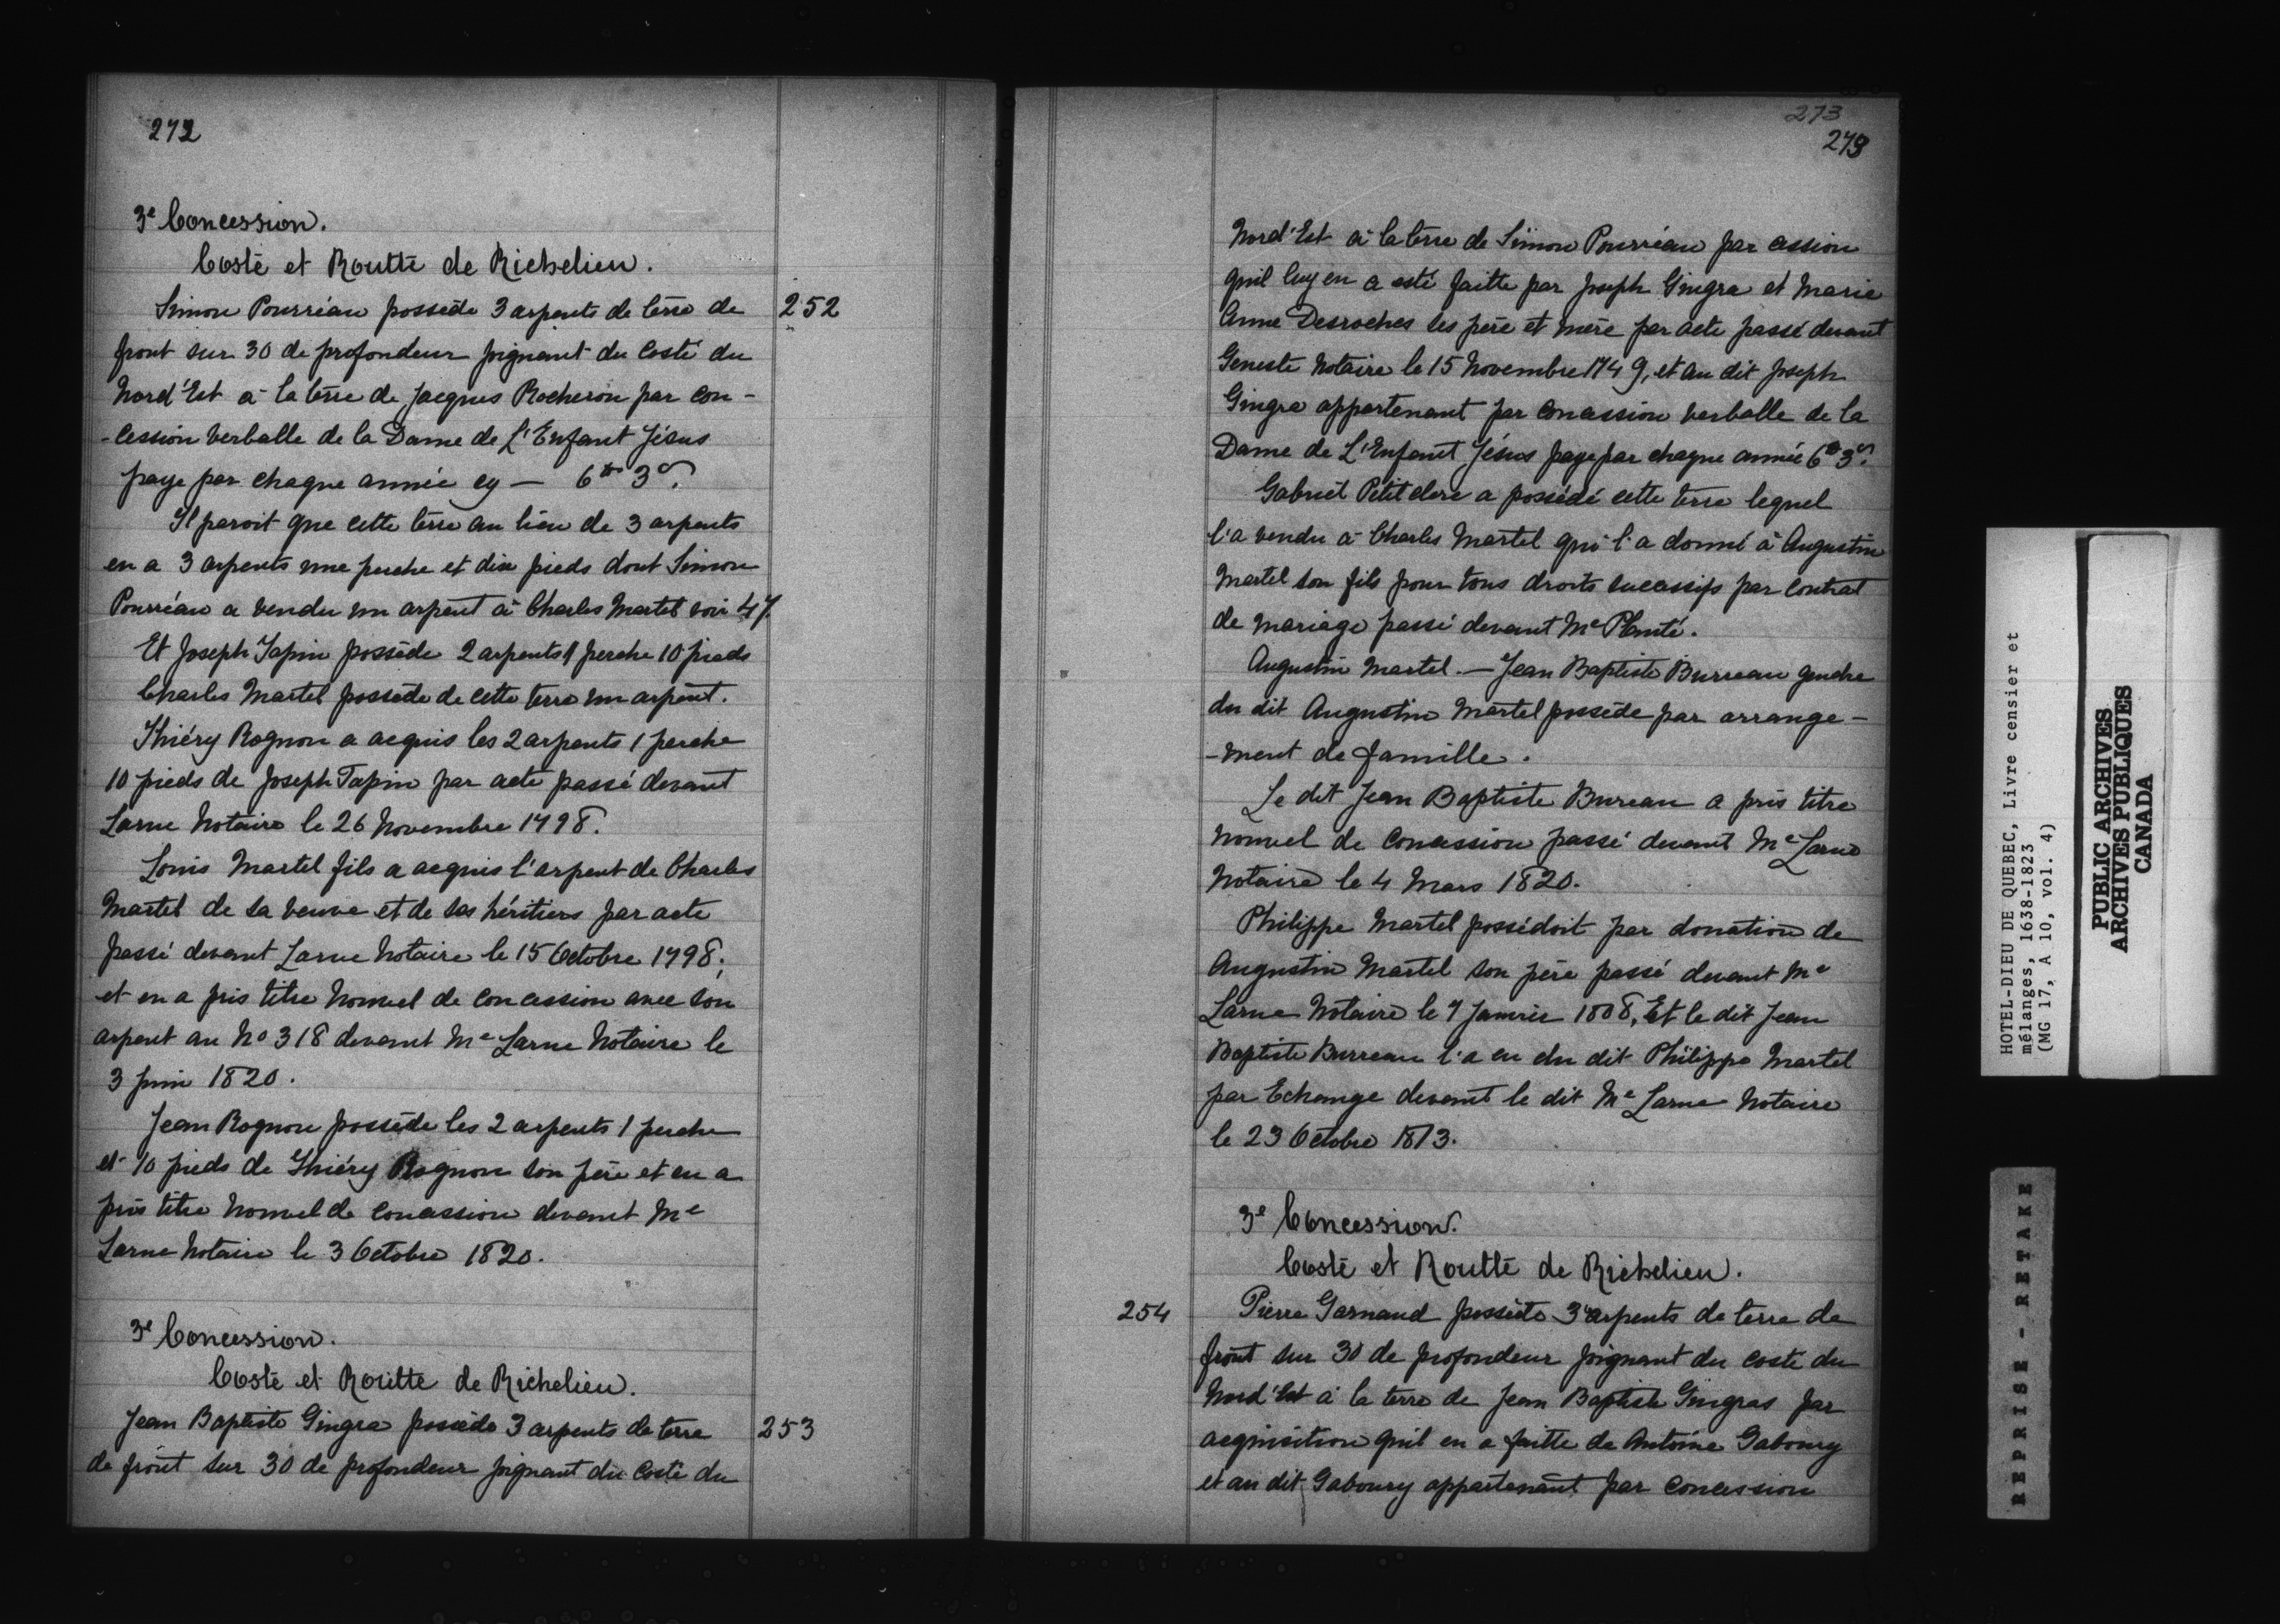 272
3e Concession.
Costé et Routte de Richelieu.
Simon Pourréau possède 3 arpents de terre de 252
front sur 30 de profondeur joignant du costé du
Nord'Est à la terre de Jacques Rocheron par con-
-cession verballe de la Dame de L'Enfant Jésus
paye par chaque année cy — 6tt 3s.
Il paroit que cette terre au lieu de 3 arpents
en a 3 arpents une perche et dix pieds dont Simon
Pourréau a vendu un arpent à Charles Martel voir 47.
Et Joseph Tapin possède 2 arpents 1 perche 10 pieds
Charles Martel possède de cette terre un arpent.
Thiéry Rognon a acquis les 2 arpents 1 perche
10 pieds de Joseph Tapin par acte passé devant
Larue Notaire le 26 Novembre 1798.
Louis Martel fils a acquis l'arpent de Charles
Martel de sa veuve et de ses héritiers par acte
passé devant Larue Notaire le 15 Octobre 1798;
et en a pris titre Nouvel de concession avec son
arpent au No 318 devant Me Larue Notaire le
3 Juin 1820.
Jean Rognon possède les 2 arpents 1 perche
et 10 pieds de Thiéry Rognon son père et en a
pris titre Nouvel de concession devant Me
Larue Notaire le 3 Octobre 1820.
3e Concession.
Costé et Routte de Richelieu.
Jean Baptiste Gingra possède 3 arpents de terre 253
de front sur 30 de profondeur joignant du costé du
273
273
Nord'Est à la terre de Simon Pourréau par cession
quil luy en a esté faitte par Joseph Gingra et Marie
Anne Desroches ses père et mère par acte passé devant
Geneste Notaire le 15 Novembre 1749, et au dit Joseph
Gingra appartenant par concession verballe de la
Dame de L'Enfant Jésus paye par chaque année 6tt 3s.
Gabriel Petitclerc a possédé cette terre lequel
l'a vendu à Charles Martel qui l'a donné à Augustin
Martel son fils pour tous droits successifs par Contrat
de Mariage passé devant Me Planté.
Augustin Martel. — Jean Baptiste Burreau gendre
du dit Augustin Martel possède par arrange-
-ment de famille.
Le dit Jean Baptiste Bureau a pris titre
Nouvel de concession passé devant Me Larue
Notaire le 4 Mars 1820.
Philippe Martel possédoit par donation de
Augustin Martel son père passé devant Me
Larue Notaire le 7 Janvier 1808, Et le dit Jean
Baptiste Burreau l'a eu du dit Philippe Martel
par Echange devant le dit Me Larue Notaire
le 23 Octobre 1813.
3e Concession.
Costé et Routte de Richelieu.
254 Pierre Garnaud possède 3 arpents de terre de
front sur 30 de profondeur joignant du costé du
Nord'Est à la terre de Jean Baptiste Gingras par
acquisition quil en a faitte de Antoine Gaboury
et au dit Gaboury appartenant par concession
HOTEL-DIEU DE QUEBEC, Livre censier et
mélanges, 1638-1823
(MG 17, A 10, vol. 4)
PUBLIC ARCHIVES
ARCHIVES PUBLIQUES
CANADA
REPRISE - RETAKE